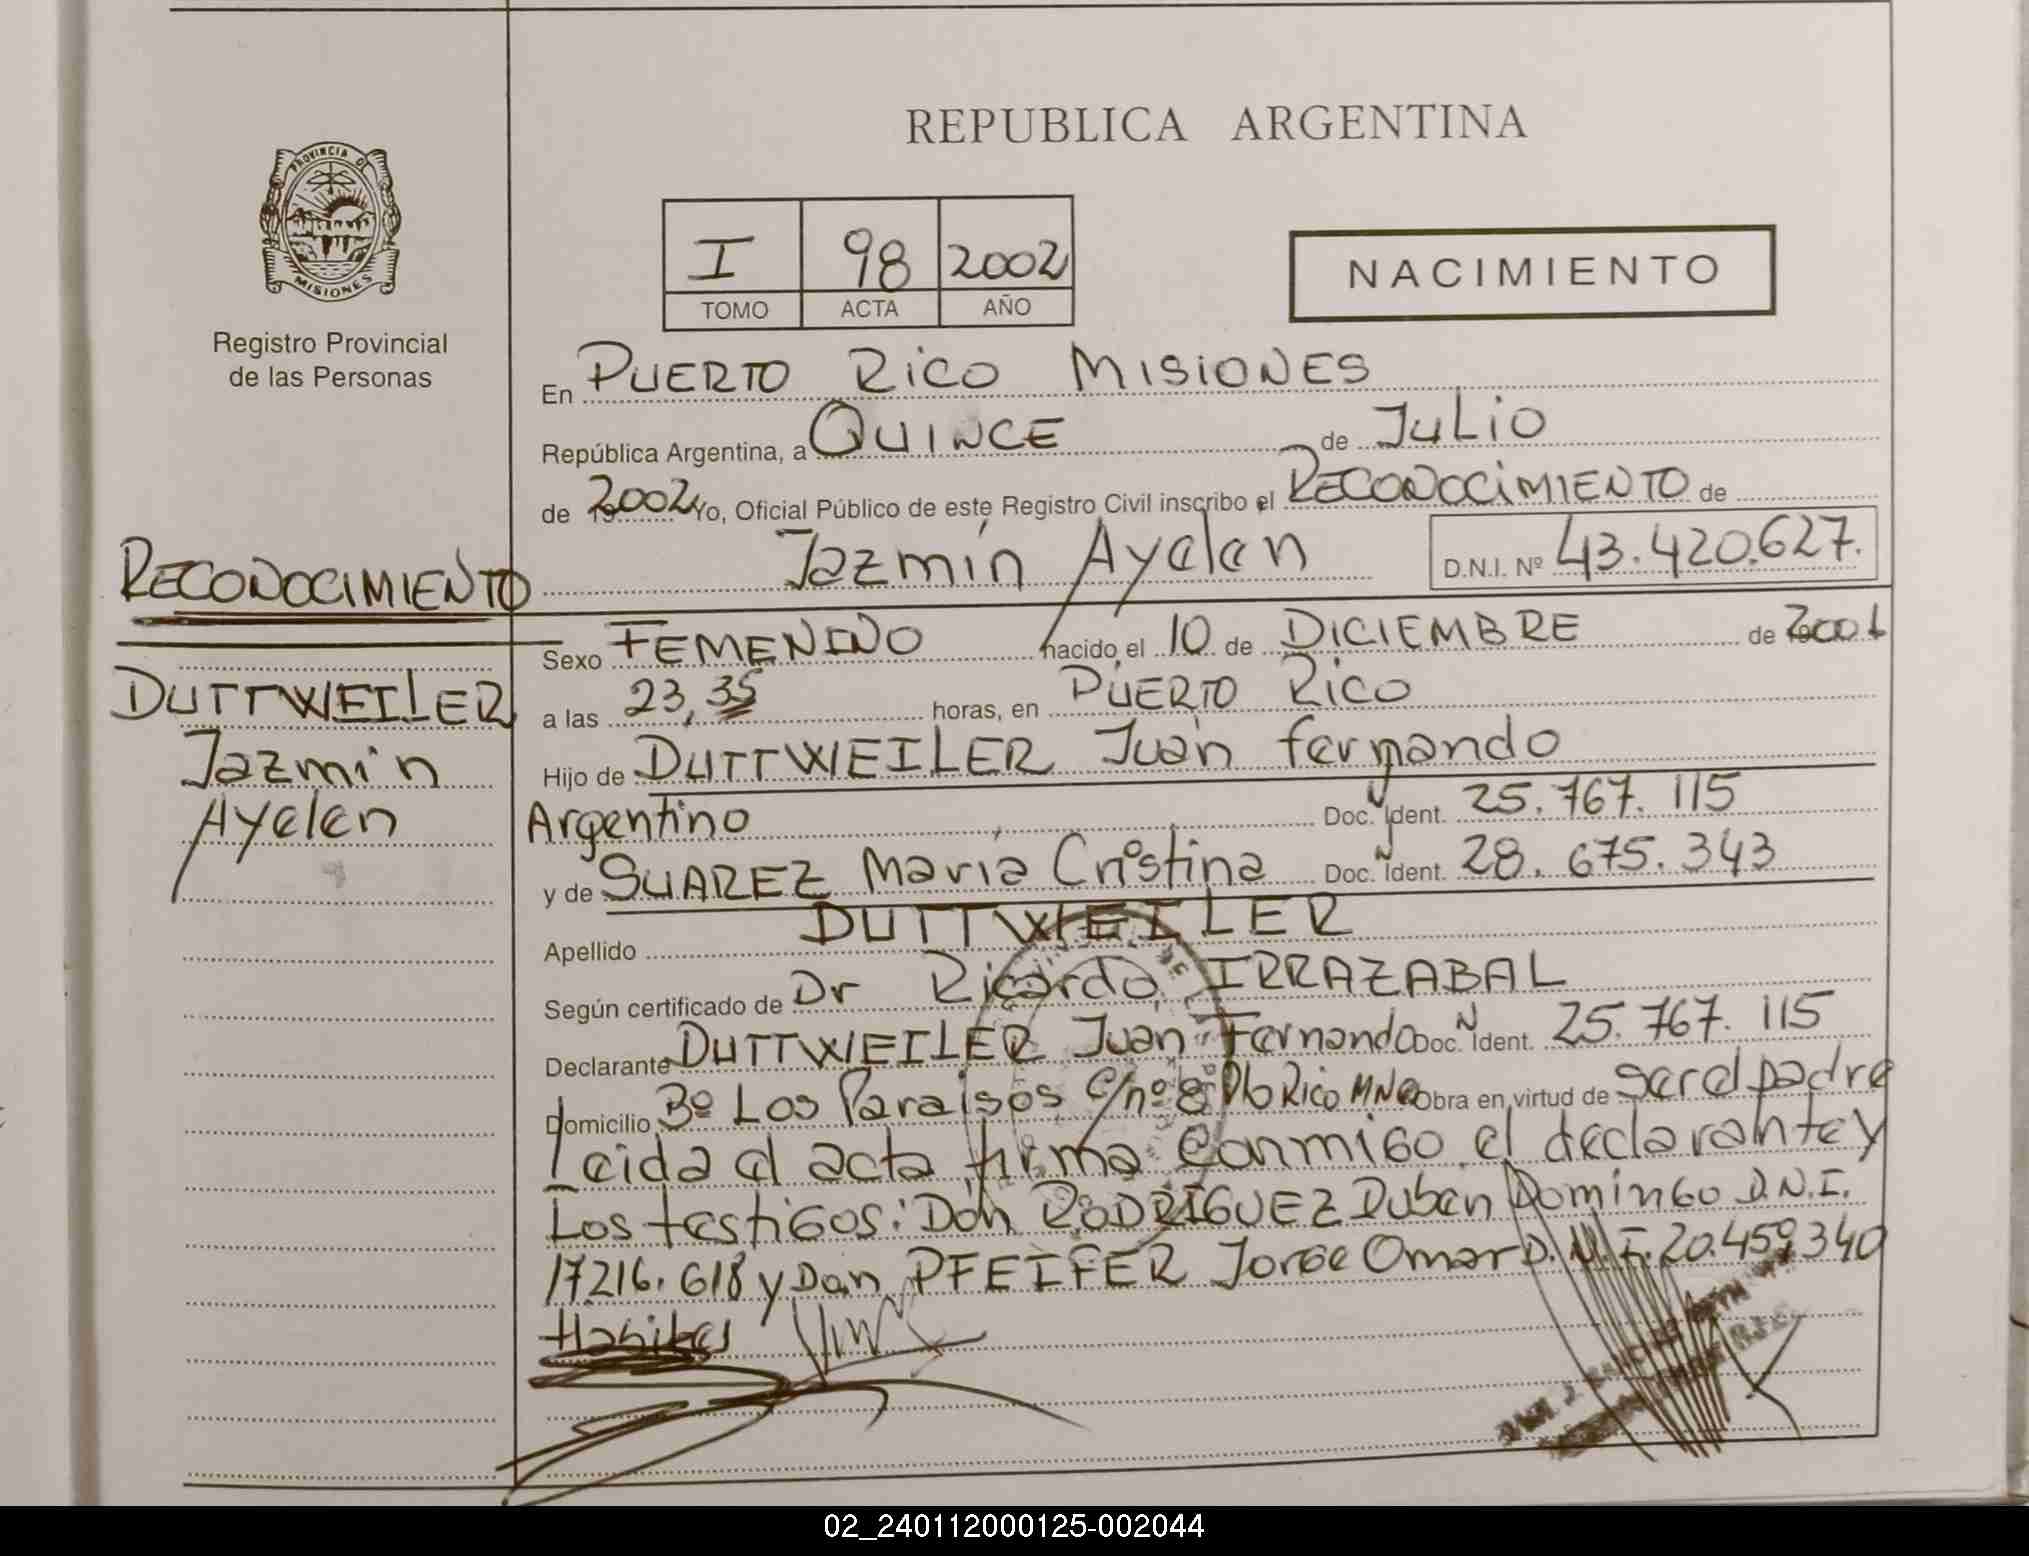 REPUBLICA ARGENTINA
PROVINCIA DE
MISIONES
Registro Provincial
de las Personas
I 98 2002
TOMO ACTA AÑO
NACIMIENTO
En PUERTO RICO MISIONES
República Argentina, a QUINCE de JULIO
de 2002 Yo, Oficial Público de este Registro Civil inscribo el RECONOCIMIENTO de
Jazmín Ayelen D.N.I. Nº 43.420.627.
RECONOCIMIENTO
DUTTWEILER
Jazmin
Ayelen
Sexo FEMENINO nacido el 10 de DICIEMBRE de 2001
a las 23,35 horas, en PUERTO RICO
Hijo de DUTTWEILER Juan Fernando
Argentino Doc. N Ident. 25.767.115
y de SUAREZ María Cristina Doc. N Ident. 28.675.343
Apellido DUTTWEILER
Según certificado de Dr Ricardo IRRAZABAL
Declarante DUTTWEILER Juan Fernando Doc. N Ident. 25.767.115
Domicilio Bº Los Paraisos C/nº 8 Pto Rico Mnes Obra en virtud de ser el padre
Leida el acta firma conmigo el declarante y
Los testigos: Don RODRIGUEZ Ruben Domingo D.N.I.
17.216.618 y Don PFEIFER Jorge Omar D.N.I. 20.459.340
Habiles
02_240112000125-002044